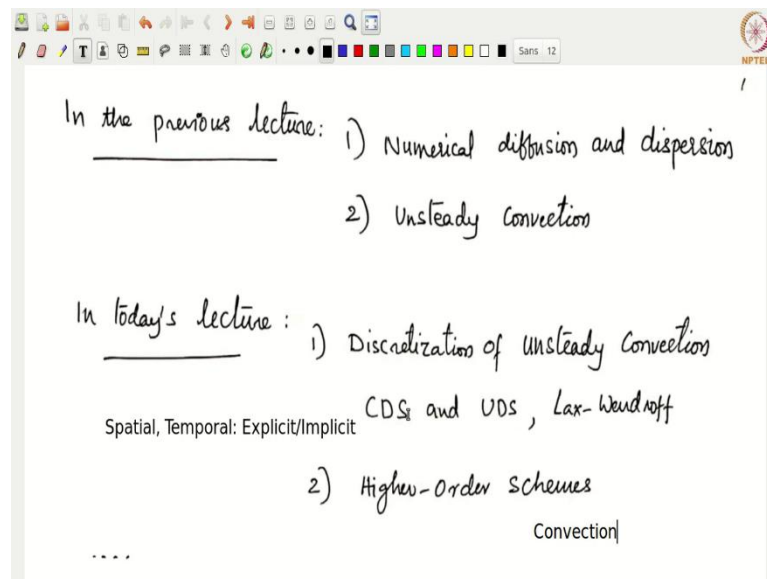 Sans 12
NPTEL
1
In the previous lecture: 1) Numerical diffusion and dispersion
2) Unsteady Convection
In today's lecture: 1) Discretization of Unsteady Convection
CDS and UDS, Lax-Wendroff
Spatial, Temporal: Explicit/Implicit
2) Higher-Order Schemes
Convection
....